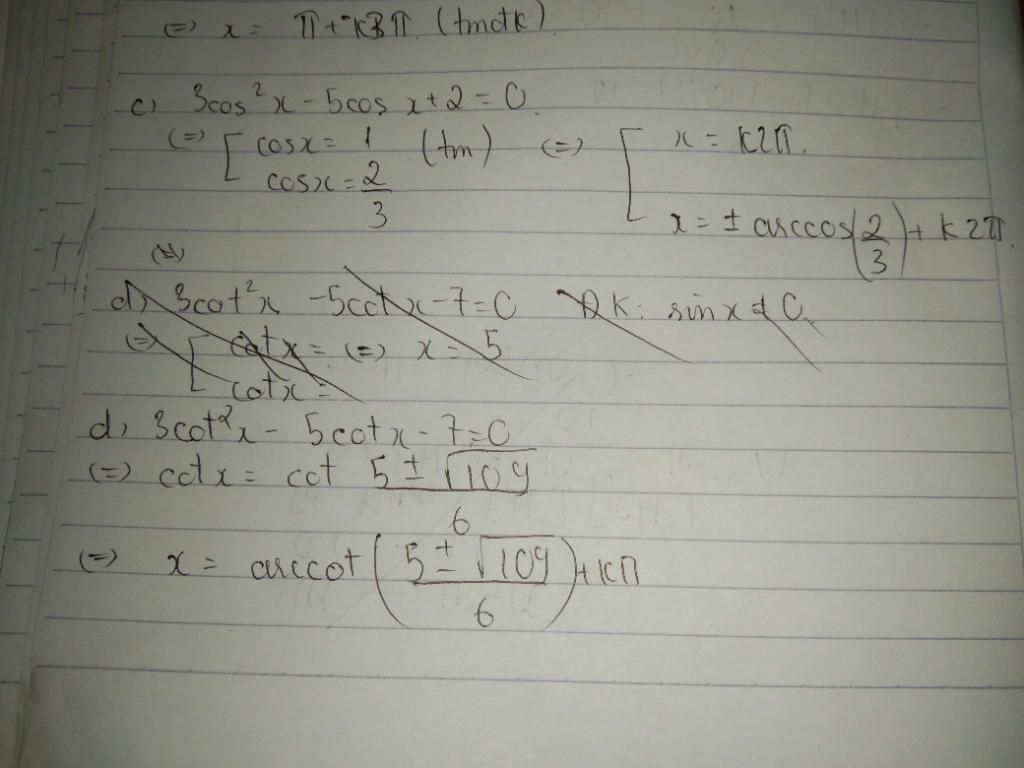 (=) x = π + k3π (tmđk).
c) 3cos²x - 5cos x + 2 = 0.
(=) [ cosx = 1 (tm) (=) [ x = k2π.
cosx = 2/3 x = ± arccos(2/3) + k2π.
(=)
d) 3cot²x - 5cotx - 7 = 0 ĐK: sinx ≠ 0
(=) [ cotx = (=) x = 5
cotx =
d, 3cot²x - 5cotx - 7 = 0
(=) cotx = cot (5 ± √109)/6
(=) x = arccot((5 ± √109)/6) + kπ